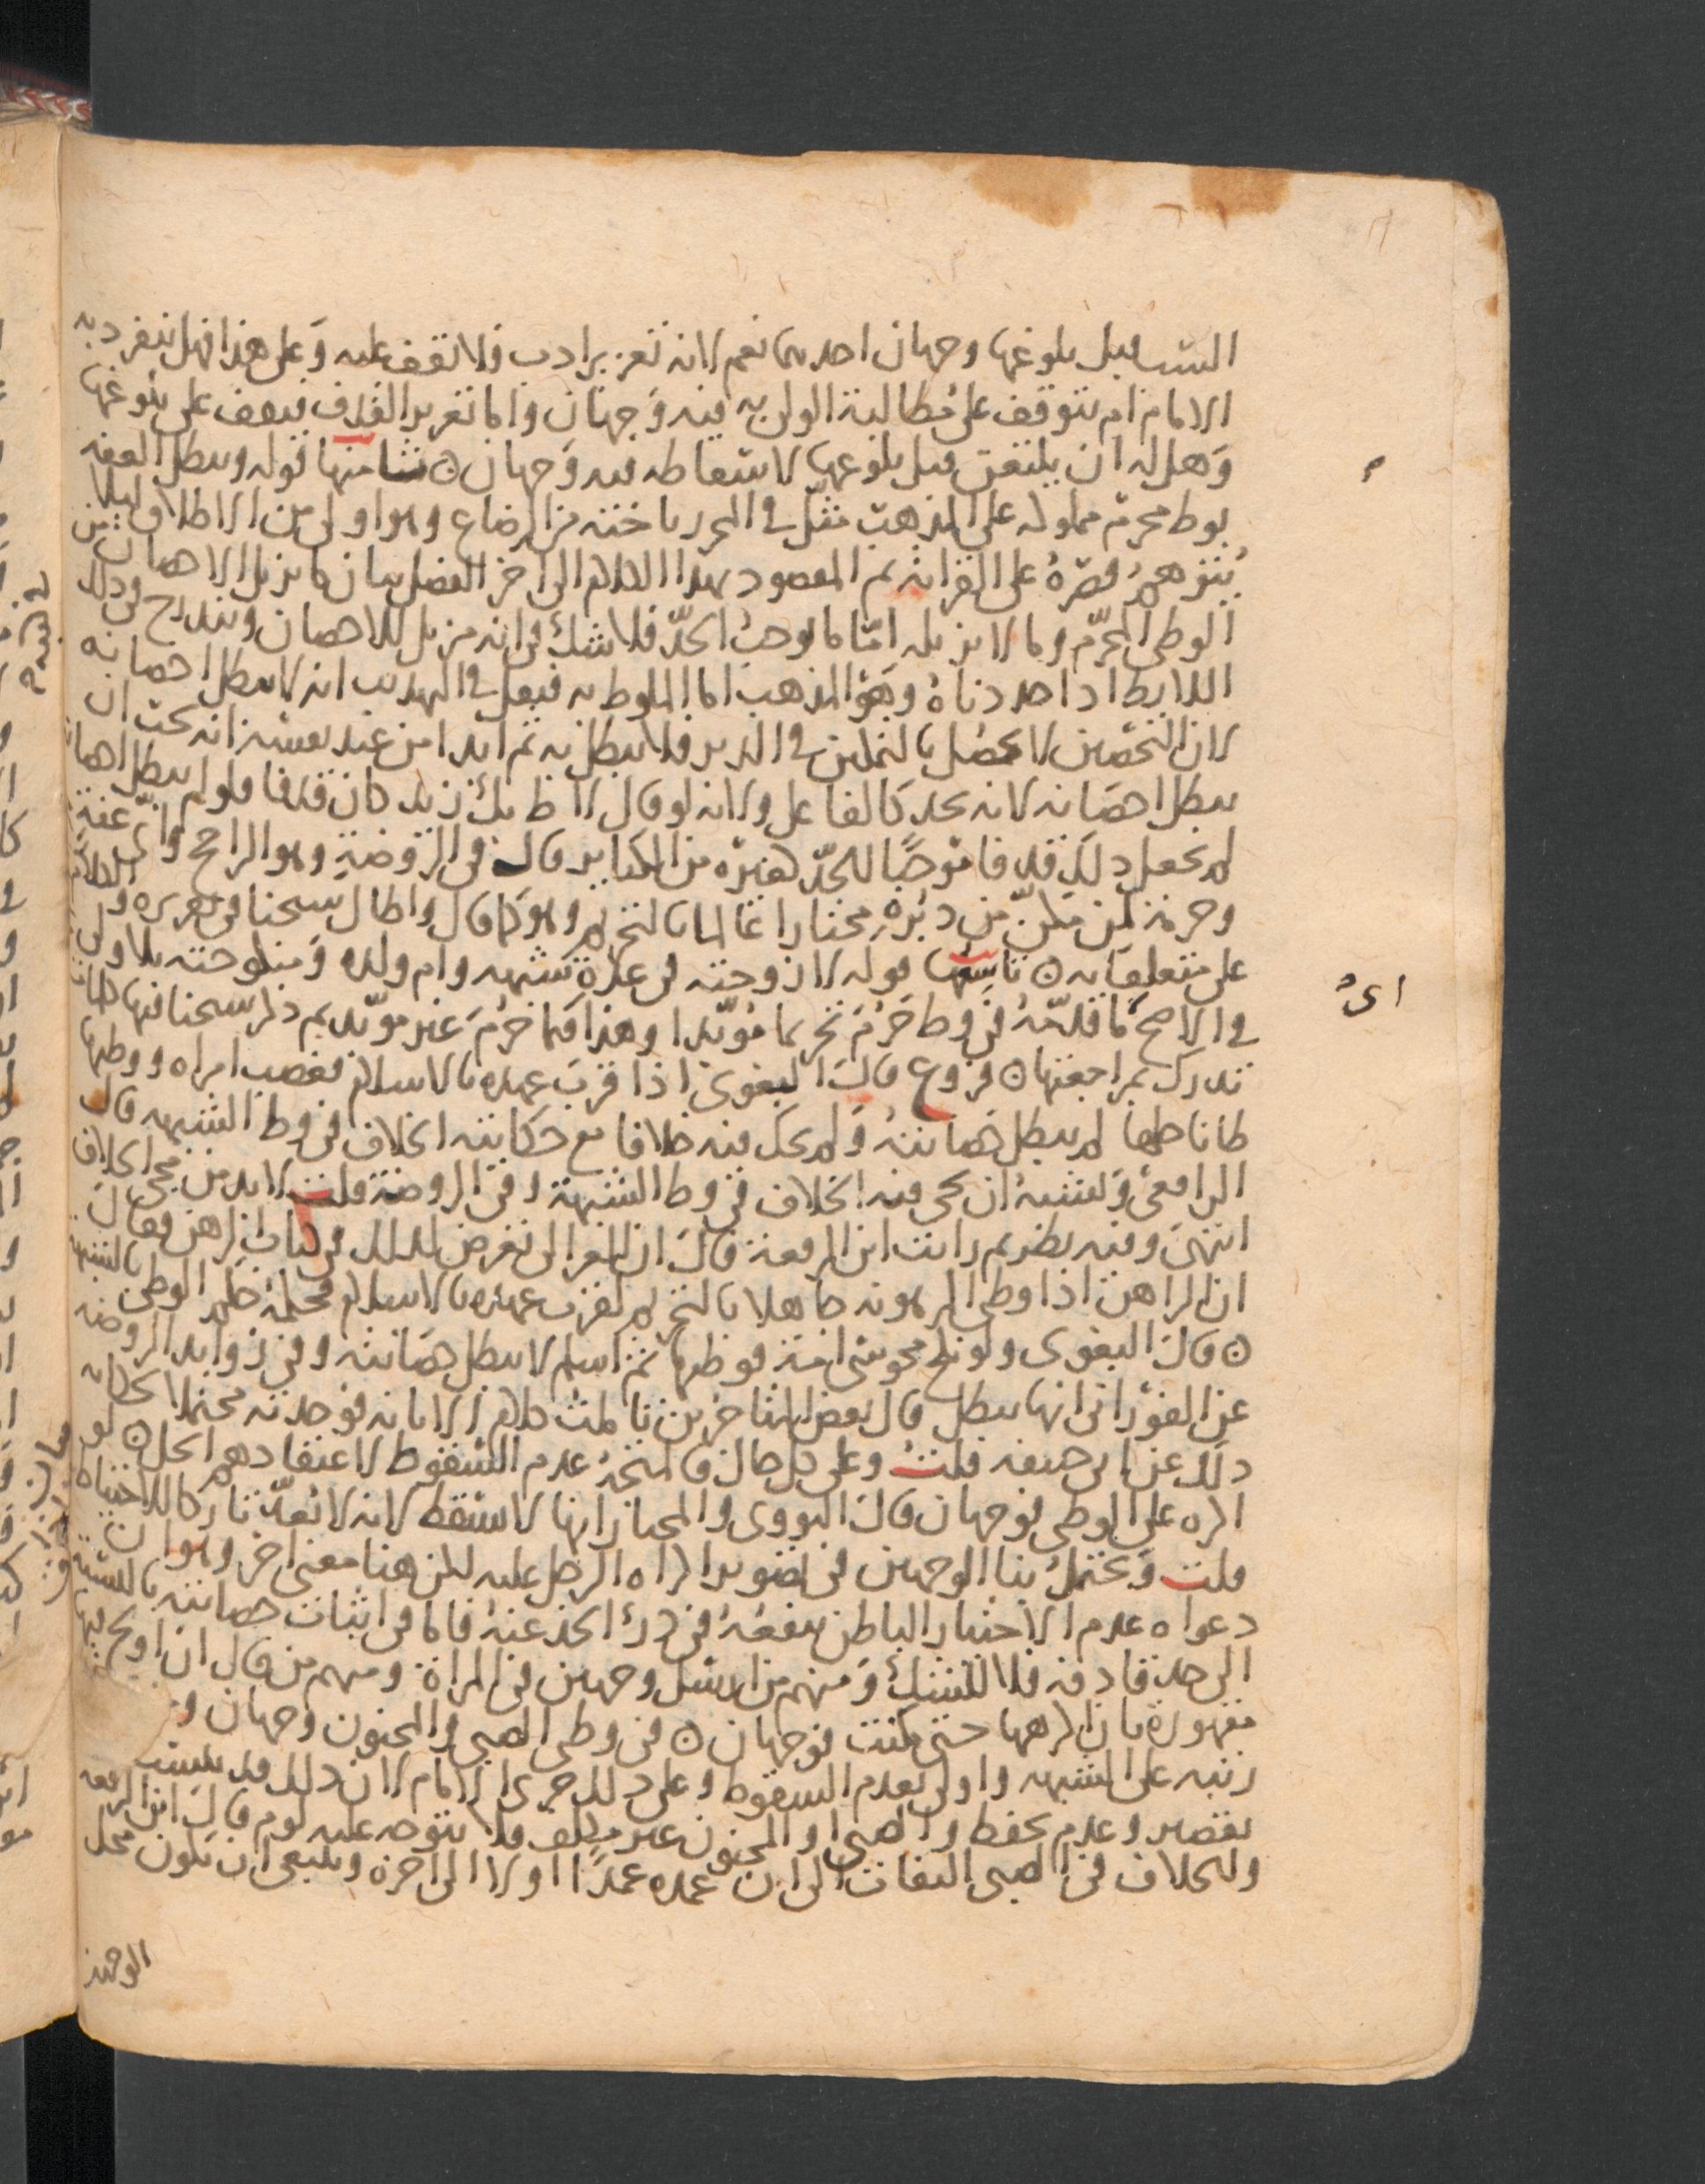 السب قبل بلوغها وجهان احدهما نعم لانه تعزير ادب فلا تقف عليه وعلى هذا فهل ينفرد به
الامام ام يتوقف على مطالبة الولى به فيه وجهان واما تعزير القذف فيقف على بلوغها
وهل له ان يلتعن قبل بلوغها لاسقاطه فيه وجهان ثامنها قوله ويبطل العفة
بوطء محرم مملوكة على المذهب مثل فى المحرر باخته من الرضاع وهو اولى من الاطلاق ليلا
يتوهم قصره على القرابة ثم المقصود بهذا الكلام الى اخر الفصل بيان ما يزيل الاحصان من
الوطى المحرم وما لا يزيله اما ما يوجب الحد فلا شك فى انه مزيل للاحصان ويندرج فى ذلك
اللايط اذا حددناه وهو المذهب اما الملوط به فنقل فى التهذيب انه لا يبطل احصانه
لان التحصين لا يحصل بالتمكين فى الدبر فلا يبطل به ثم ابدا من عند نفسه انه يجب ان
يبطل احصانه لانه يحد كالفاعل ولانه لو قال لاط بك زيد كان قذفا فلو لم يبطل احصان
لم يجعل ذلك قذفا موجبا للحد قال فى الروضة وهو الراجح واى عفة
وحرمة لمن مكن من دبره مختارا عالما بالتحريم وهو كما قال واطال شيخنا فى تقريره والكلام
على متعلقاته تاسعها قوله لا زوجته فى عدة شبهة وام ولده ومنكوحته بلا ولى
فى الاصح ما قدمه فى وطء حرم تحريما مؤبدا وهذا فيما حرم غير مؤبد ثم ذكر شيخنا فيها
تدرك بمراجعتها فروع قال البغوى اذا قرب عهده بالاسلام فغصب امراة ووطيها
ظانا حلها لم يبطل حصانته ولم يحك فيه خلافا مع حكايته الخلاف فى وطء الشبهة قال
الرافعى ويشبه ان يجى فيه الخلاف فى وطء الشبهة وفى الروضة قلت لا بد من مجى الخلاف
انتهى وفيه نظر ثم رايت ابن الرفعة قال ان الغزالى تعرض لذلك فى كتاب الرهن فقال
ان الراهن اذا وطى المرهونة جاهلا بالتحريم لقرب عهده بالاسلام فحكمه حكم الوطى بالشبهة
قال البغوى ولو نكح مجوسى امه فوطيها ثم اسلم لا يبطل حصانته وفى زوايد الروضة
عن الفورانى انها تبطل قال بعض المتاخرين تاملت كلام الابانة فوجدته محتملا لحكاية
ذلك عن ابى حنيفة قلت وعلى كل حال فالمتجه عدم السقوط لاعتقادهم الحل لو
اكره على الوطى فوجهان قال النووى والمختار انها لا تسقط لانه لا يعد تاركا للاحتياط
قلت ويحتمل بنا الوجهين فى تصوير اكراه الرجل عليه لكن هنا معنى اخر وهو ان
دعواه عدم الاختيار الباطن ينفعه فى درء الحد عنه فاما فى اثبات حصانته بالنسبة
الى حد قاذفه فلا للشك ومنهم من ارسل وجهين فى المراة ومنهم من قال ان اولج فيها
مقهورة بان اكرهها حتى مكنت فوجهان فى وطى الصبى والمجنون وجهان
رتبه على الشبهة واولى بعدم السقوط وعلى ذلك جرى الامام لان ذلك قد ينسب
بقصير وعدم تحفظ والصبى والمجنون غير مكلف فلا يتوجه عليه لوم قال ابن الرفعة
وللخلاف فى الصبى التفات الى ان عمده عمدا اولا الى اخره وينبغى ان يكون محل
الوجهين